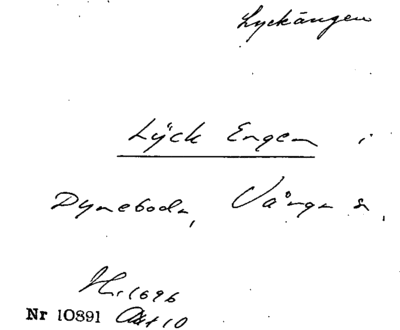 Lyckängen
Lÿck Engen i
Dyneboda, Vånga sn,
Hr 1696
Nr 10891 Akt 10